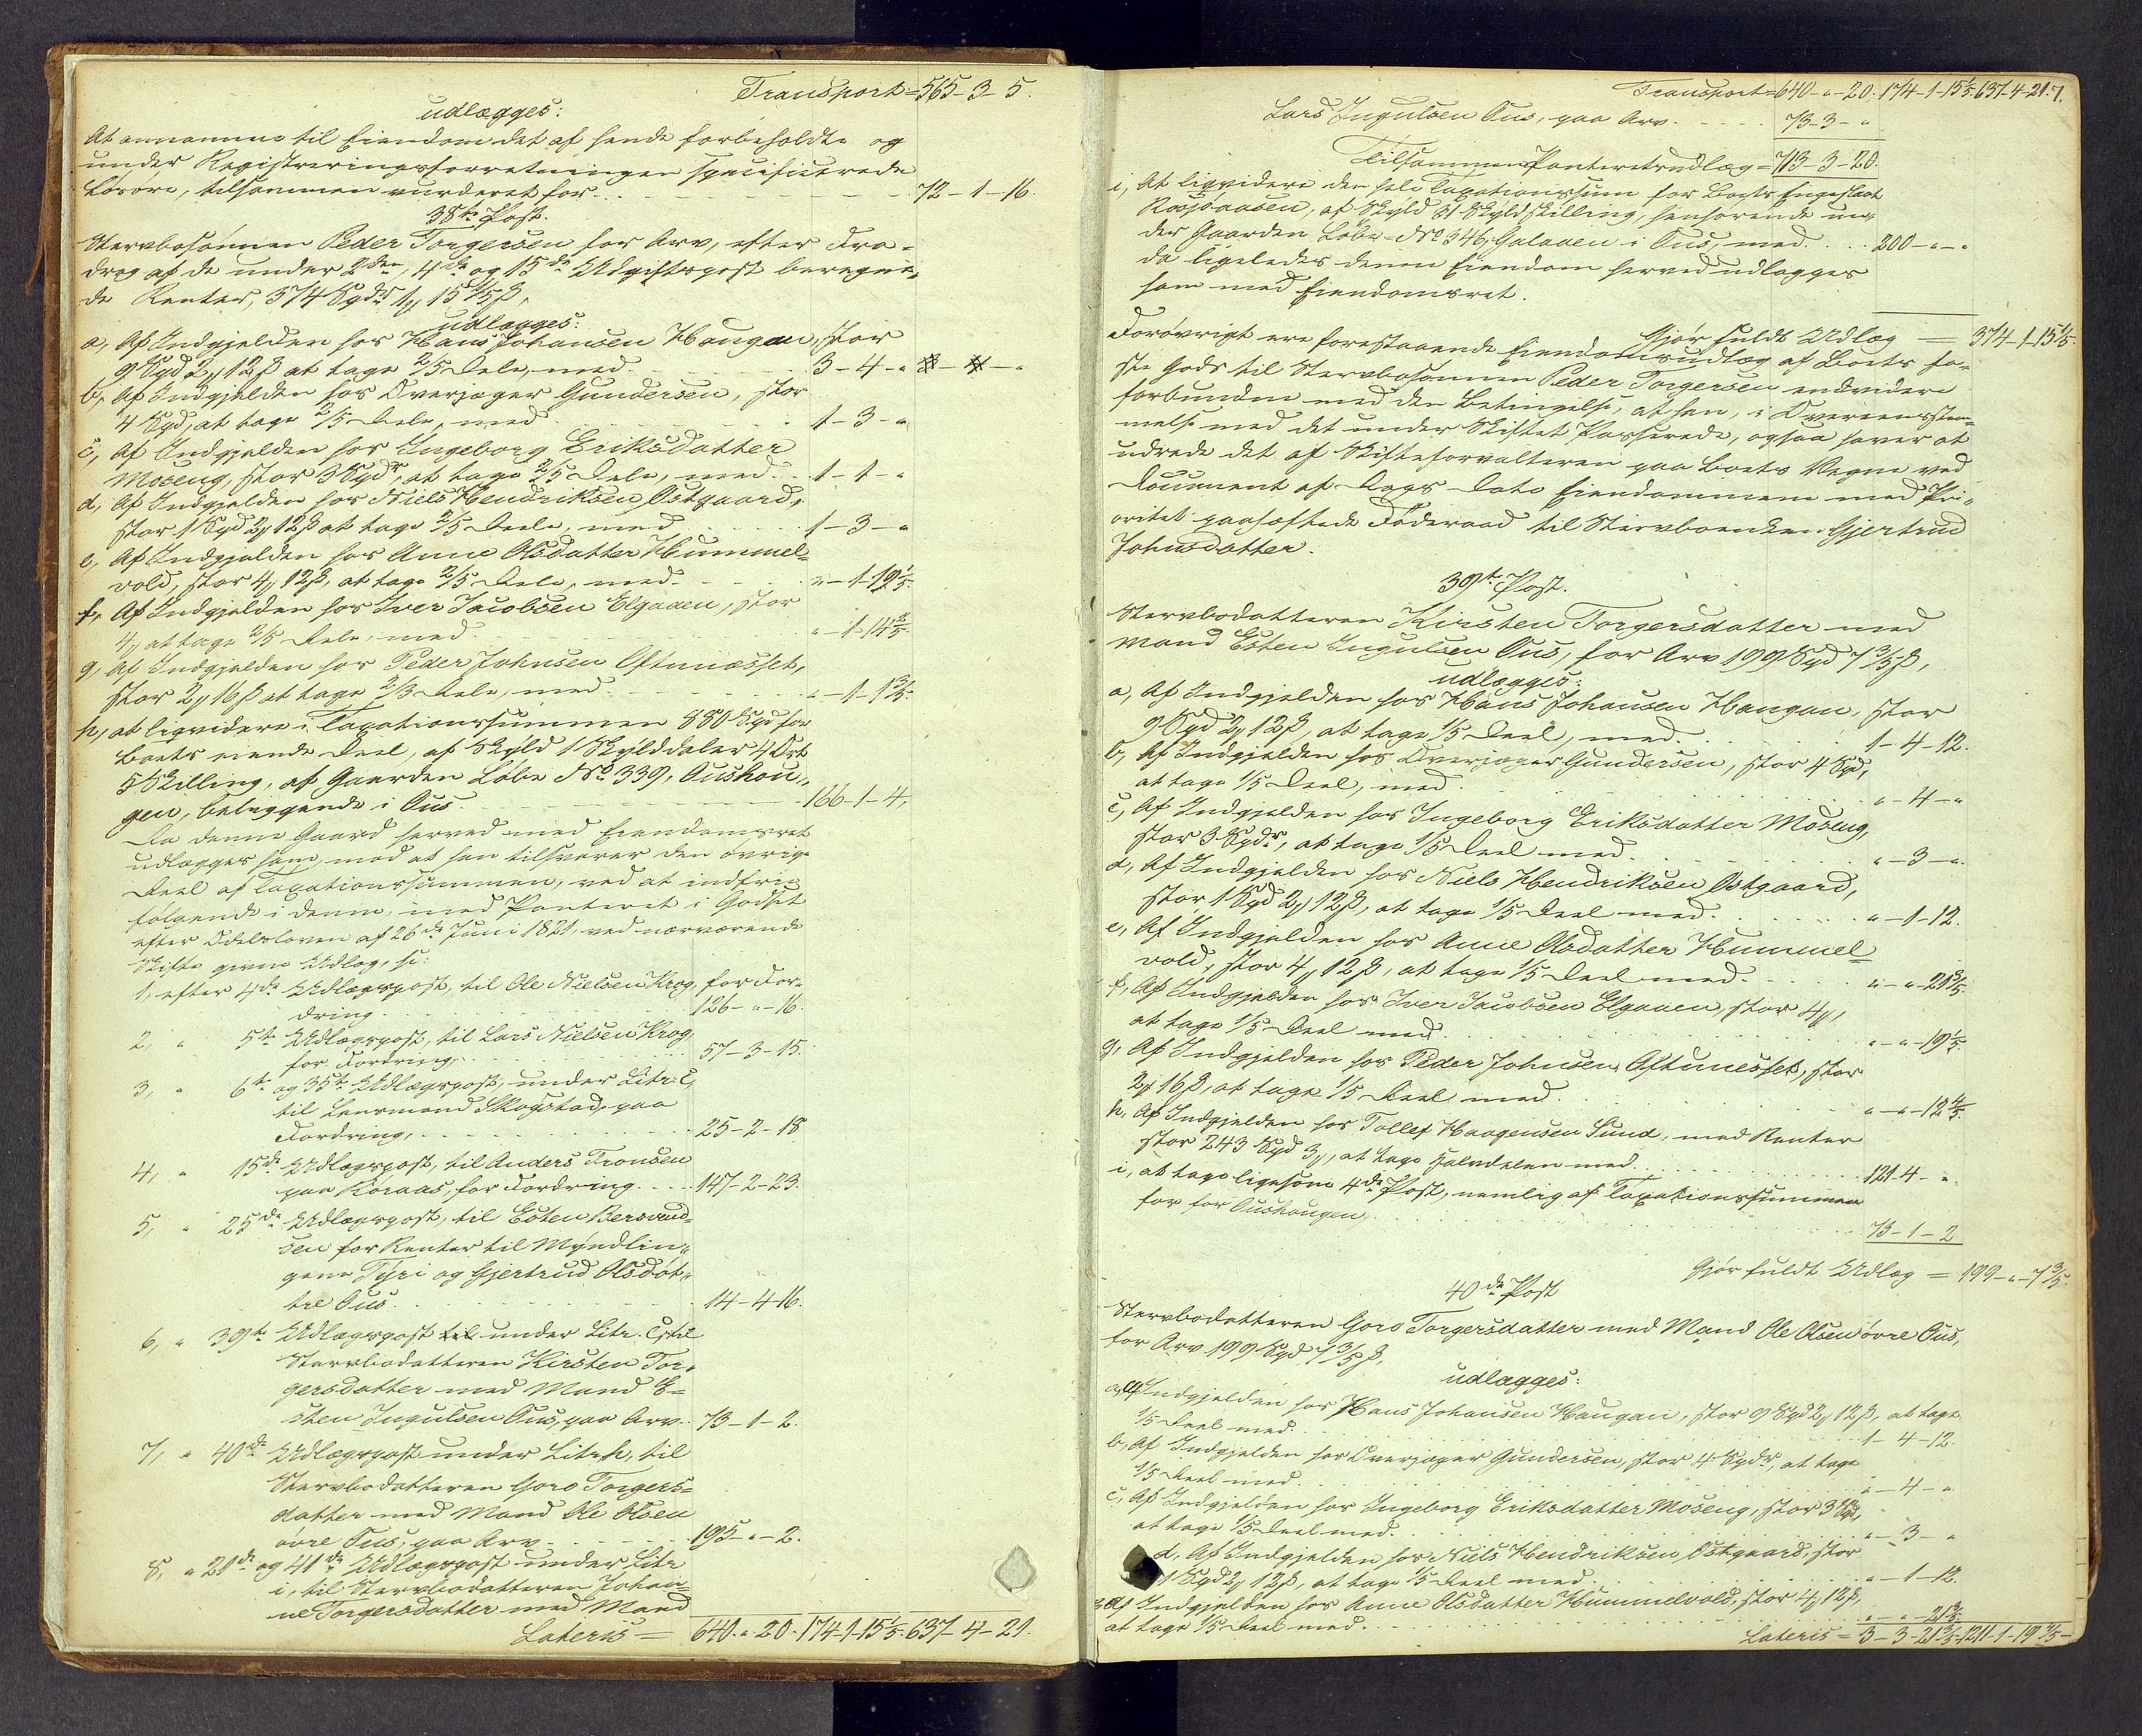 Transport = 565-3-5.
udlægges:
At annamme til Eiendom det af hende forbeholdte og
under Registreringsforretningen specificerede
Løsøre, tilsammen vurderet for . . . 72-1-16.
38te Post.
Stervbosønnen Peder Torgersen for Arv, efter Fra-
drag af de under 2den, 4de og 15de Udgiftspost beregne-
de Renter, 374 Spdr 1 15 1/5 ß,
udlægges:
a, Af Indgjelden hos Hans Johansen Haugan, stor
9 Spd 2 12 ß at tage 2/5 Dele, med . . . 3-4-"
b, Af Indgjelden hos Overjæger Gundersen, stor
4 Spd, at tage 2/5 Dele, med . . . 1-3-"
c, Af Indgjelden hos Ingeborg Eriksdatter
Moseng, stor 3 Spdr, at tage 2/5 Dele, med . . 1-1-"
d, Af Indgjelden hos Niels Hendriksen Østgaard,
stor 1 Spd 2 12 ß at tage 2/5 Dele, med . . . 1-3-"
e, Af Indgjelden hos Anne Olsdatter Hummel-
vold, stor 4 12 ß, at tage 2/5 Dele, med . . . "-1-19 1/5.
f, Af Indgjelden hos Iver Jacobsen Elgaaen, stor
4, at tage 2/5 Dele, med . . . "-1-14 2/5.
g, Af Indgjelden hos Peder Johnsen Oftunæsset,
stor 2 16 ß at tage 2/5 Dele, med . . . "-1-1 3/5.
h, at liqvidere i Taxationssummen 880 Spd for
Boets eiende Deel, af Skyld 1 Skylddaler 4 Ort
5 Skilling, af Gaarden Løbe No 339, Aushou-
gen, beliggende i Ous . . . 166-1-4,
Da denne Gaard herved med Eiendomsret
udlægges ham, mod at han tilsvarer den øvrige
Deel af Taxationssummen, ved at indfrie
følgende i denne, med Panteret i Godset
efter Odelsloven af 26de Juni 1821, ved nærværende
Skifte givne Udlæg, s:
1, efter 4de Udlægspost, til Ole Nielsen Krog, for For-
dring . . . 126-"-16.
2, " 5te Udlægspost, til Lars Nielsen Krog,
for Fordring, . . . 57-3-15.
3, " 6te og 35te Udlægspost, under Litr. c,
til Lensmand Skogstad, paa
Fordring, . . . 25-2-18
4, " 15de Udlægspost, til Anders Tronsen
paa Røraas, for Fordring . . . 147-2-23.
5, " 25de Udlægspost, til Esten Bersvend-
sen for Renter til Myndlin-
gene Tyri og Gjertrud Olsdøt-
tre Ous . . . 14-4-16.
6, " 39te Udlægspost under Litr. i, til
Stervbodatteren Kirsten Tor-
gersdatter med Mand E-
sten Ingulsen Ous, paa Arv . . 73-1-2.
7, " 40de Udlægspost under Litr. h, til
Stervbodatteren Goro Torgers-
datter med Mand Ole Olsen
øvre Ous, paa Arv . . . 195-"-2.
8, " 21de og 41de Udlægspost under Litr
i, til Stervbodatteren Johan-
ne Torgersdatter med Mand
Lateris = 640-"-20. 174-1-15 1/5. 637-4-21.
Transport = 640-"-20. 174-1-15 1/5. 637-4-21. 7.
Lars Ingulsen Ous, paa Arv . . . 73-3-"
Tilsammen Panteretsudlæg = 713-3-20.
i, At liqvidere den hele Taxationssum for Boets Engeslaat
af Skyld 21 Skyldskilling, henhørende un-
der Gaarden Løbe-No 346, Galaaen i Ous, med . . . 200-"-"
da ligeledes denne Eiendom herved udlægges
ham med Eiendomsret.
Gjør fuldt Udlæg = 374-1-15 1/5.
Forøvrigt ere forestaaende Eiendomsudlæg af Boets fa-
ste Gods til Stervbosønnen Peder Torgersen endvidere
forbunden med den Betingelse, at han, i Overeensstem-
melse med det under Skiftet Passerede, ogsaa haver at
udrede det af Skifteforvalteren paa Boets Vegne ved
Document af Dags Dato Eiendommene med Pri-
oritet paahæftede Føderaad til Stervboenken Gjertrud
Johnsdatter.
39te Post.
Stervbodatteren Kirsten Torgersdatter med
Mand Esten Ingulsen Ous, for Arv 199 Spd 7 3/5 ß,
udlægges:
a, Af Indgjelden hos Hans Johansen Haugan, stor
9 Spd 2 12 ß, at tage 1/5 Deel, med . . . 1-4-12.
b, Af Indgjelden hos Overjæger Gundersen, stor 4 Spd,
at tage 1/5 Deel, med . . . "-4-"
c, Af Indgjelden hos Ingeborg Eriksdatter Moseng,
stor 3 Spdr, at tage 1/5 Deel med . . . "-3-".
d, Af Indgjelden hos Niels Hendriksen Østgaard,
stor 1 Spd 2 12 ß, at tage 1/5 Deel med . . . "-1-12.
e, Af Indgjelden hos Anne Olsdatter Hummel-
vold, stor 4 12 ß, at tage 1/5 Deel med . . . "-"-21 3/5.
f, Af Indgjelden hos Iver Jacobsen Elgaaen, stor 4,
at tage 1/5 Deel med . . . "-"-19 1/5.
g, Af Indgjelden hos Peder Johnsen Aftunesset, stor
2 16 ß, at tage 1/5 Deel med . . . "-"-12 4/5.
h, Af Indgjelden hos Tollef Haagensen Sund, med Renter
stor 243 Spd 3, at tage Halvdelen med . . . 121-4-".
i, at tage ligesom 4de Post, nemlig af Taxationssummen
for Aushougen, . . . 73-1-2
Gjør fuldt Udlæg = 199-"-7 3/5.
40de Post
Stervbodatteren Goro Torgersdatter med Mand Ole Olsen øvre Ous,
for Arv 199 Spd 7 3/5 ß,
udlægges:
a, Af Indgjelden hos Hans Johansen Haugan, stor 9 Spd 2 12 ß, at tage
1/5 Deel med . . . 1-4-12.
b, Af Indgjelden hos Overjæger Gundersen, stor 4 Spdr, at tage
1/5 Deel med . . . "-4-".
c, Af Indgjelden hos Ingeborg Eriksdatter Moseng, stor 3 Spd,
at tage 1/5 Deel med . . . "-3-"
d, Af Indgjelden hos Niels Hendriksen Østgaard, stor
1 Spd 2 12 ß, at tage 1/5 Deel med . . . "-1-12.
e, Af Indgjelden hos Anne Olsdatter Hummelvold, stor 4 12 ß,
at tage 1/5 Deel med . . . "-"-21 3/5.
Lateris = 3-3-21 3/5. 1211-1-19 4/5